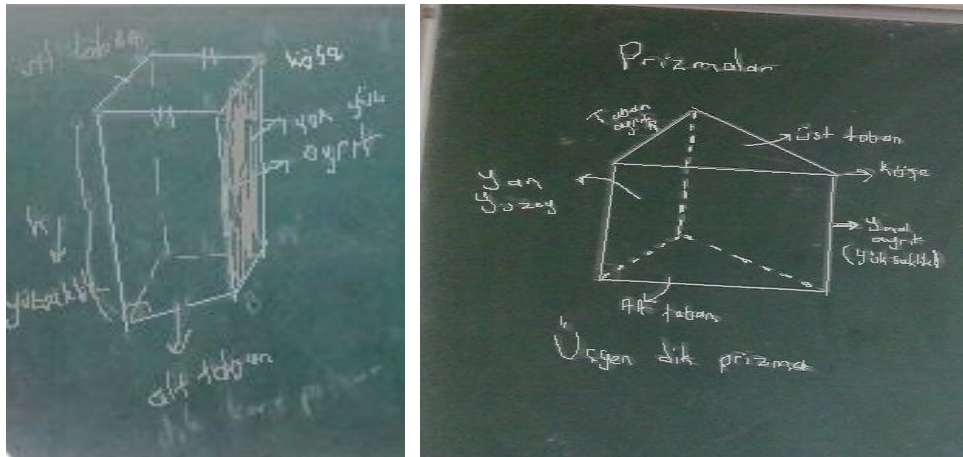 üst taban
köşe
yan yüz
ayrıt
h
yükseklik
B
alt taban
dik kare prizma
Prizmalar
Taban
ayrıtı
üst taban
köşe
Yan
Yüzey
Yanal
ayrıt
(Yükseklik)
Alt taban
Üçgen dik prizma